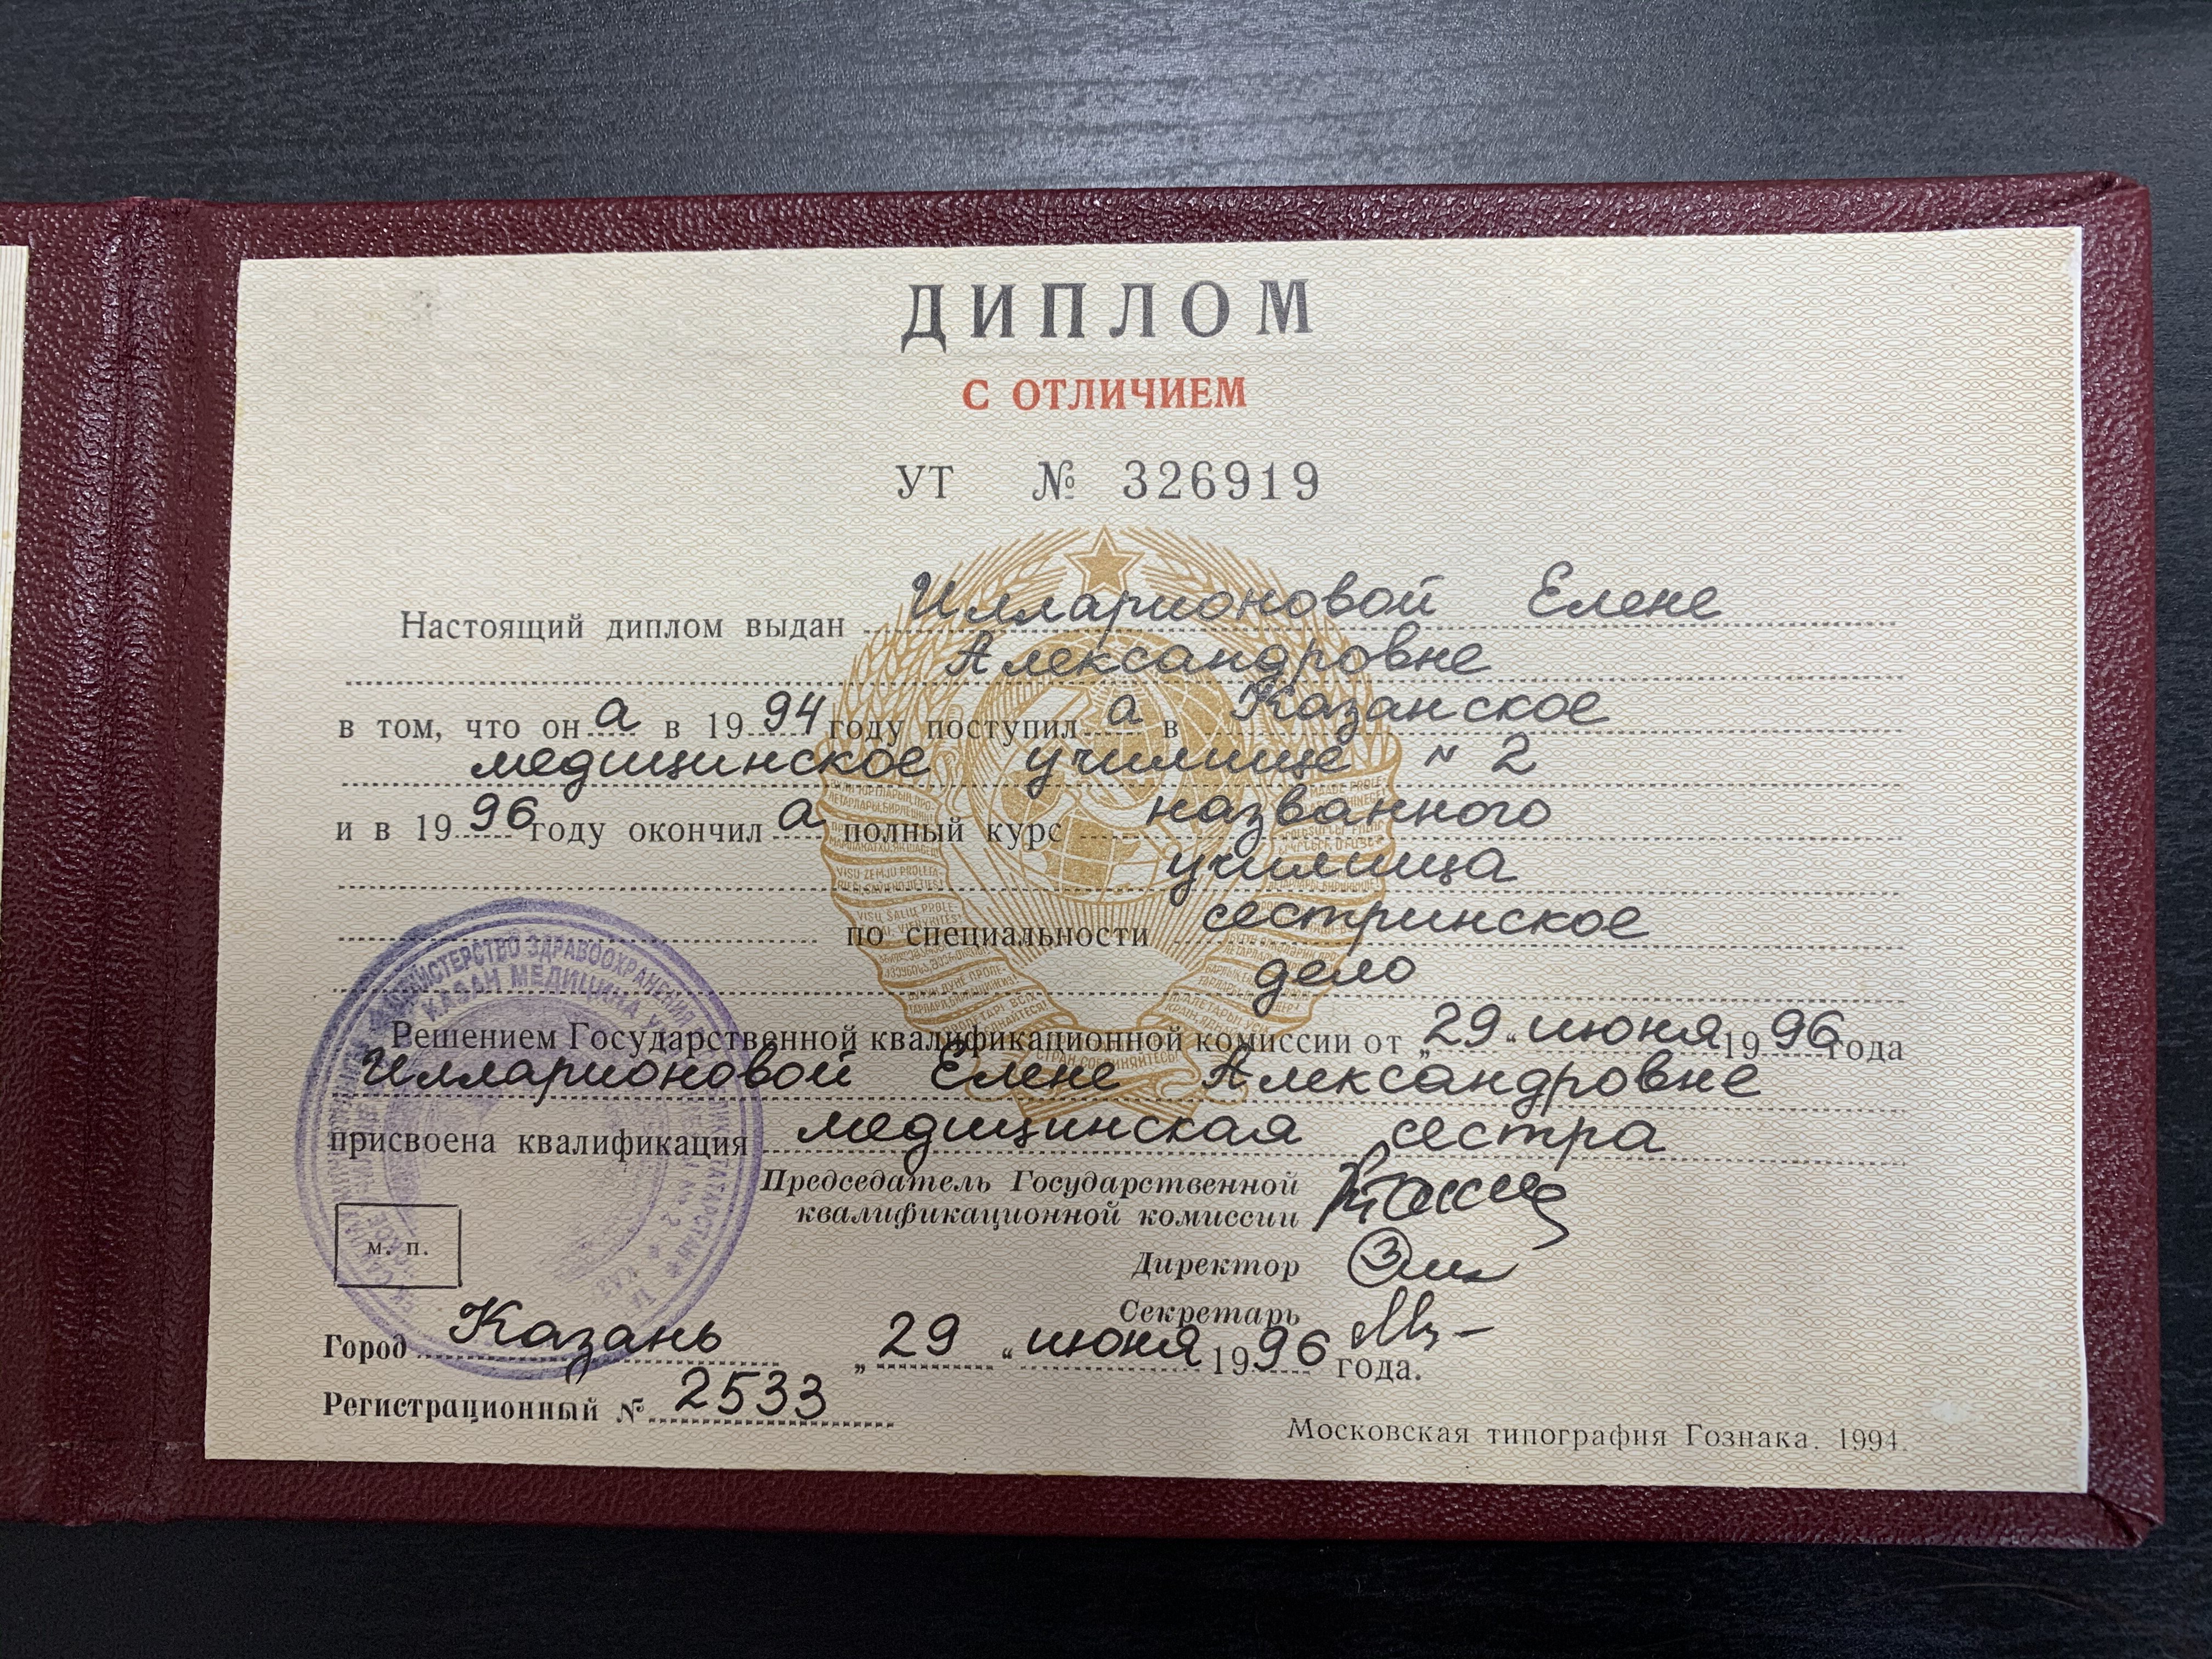 ДИПЛОМ
С ОТЛИЧИЕМ
УТ № 326919
Настоящий диплом выдан Илларионовой Елене
Александровне
в том, что она в 1994 году поступила в Казанское
медицинское училище № 2
и в 1996 году окончила полный курс названного
училища
по специальности сестринское
дело
Решением Государственной квалификационной комиссии от „29“ июня 1996 года
Илларионовой Елене Александровне
присвоена квалификация медицинская сестра
Председатель Государственной
квалификационной комиссии
Директор
Секретарь
м. п.
Город Казань „29“ июня 1996 года.
Регистрационный № 2533
Московская типография Гознака. 1994.
МИНИСТЕРСТВО ЗДРАВООХРАНЕНИЯ
КАЗАН МЕДИЦИНА